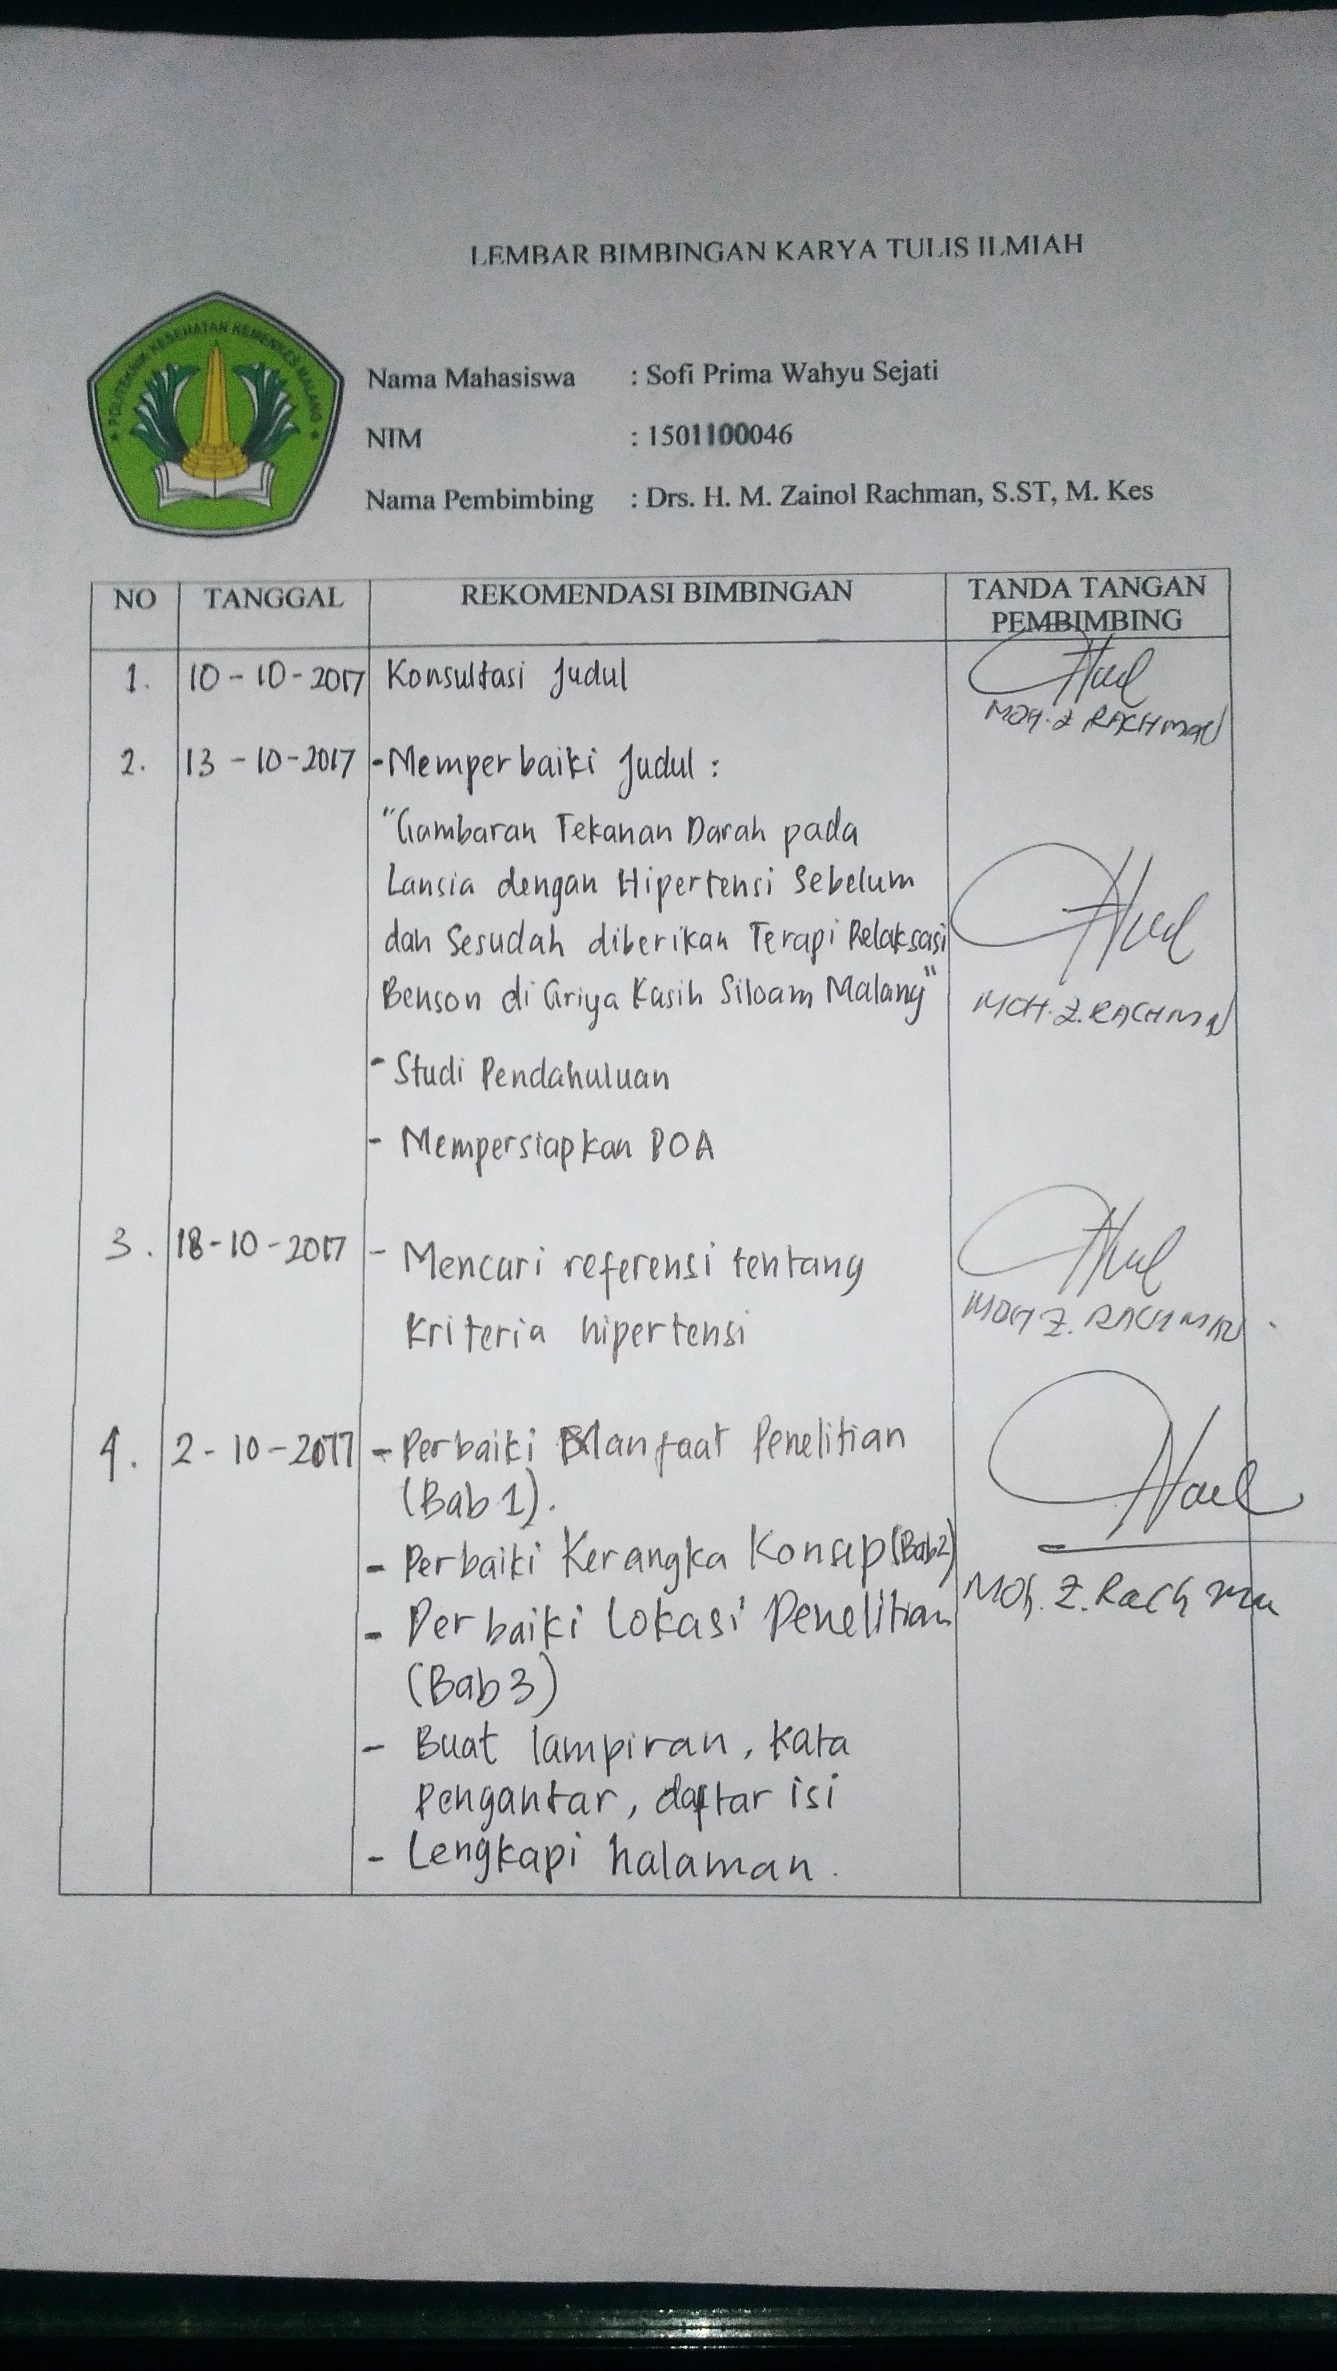 LEMBAR BIMBINGAN KARYA TULIS ILMIAH
POLITEKNIK KESEHATAN KEMENKES MALANG
Nama Mahasiswa : Sofi Prima Wahyu Sejati
NIM : 1501100046
Nama Pembimbing : Drs. H. M. Zainol Rachman, S.ST, M. Kes
NO TANGGAL REKOMENDASI BIMBINGAN TANDA TANGAN
PEMBIMBING
1. 10-10-2017 Konsultasi Judul
MOH. Z RACHMAN
2. 13-10-2017 - Memperbaiki Judul :
"Gambaran Tekanan Darah pada
Lansia dengan Hipertensi Sebelum
dan Sesudah diberikan Terapi Relaksasi
Benson di Griya Kasih Siloam Malang"
MOH. Z. RACHMAN
- Studi Pendahuluan
- Mempersiapkan POA
3. 18-10-2017 - Mencari referensi tentang
kriteria hipertensi
MOH Z. RACHMAN
4. 2-10-2017 - Perbaiki Manfaat Penelitian
(Bab 1).
- Perbaiki Kerangka Konsep (Bab 2)
- Perbaiki Lokasi Penelitian
(Bab 3)
Moh. Z. Rachman
- Buat lampiran, kata
Pengantar, daftar isi
- Lengkapi halaman.